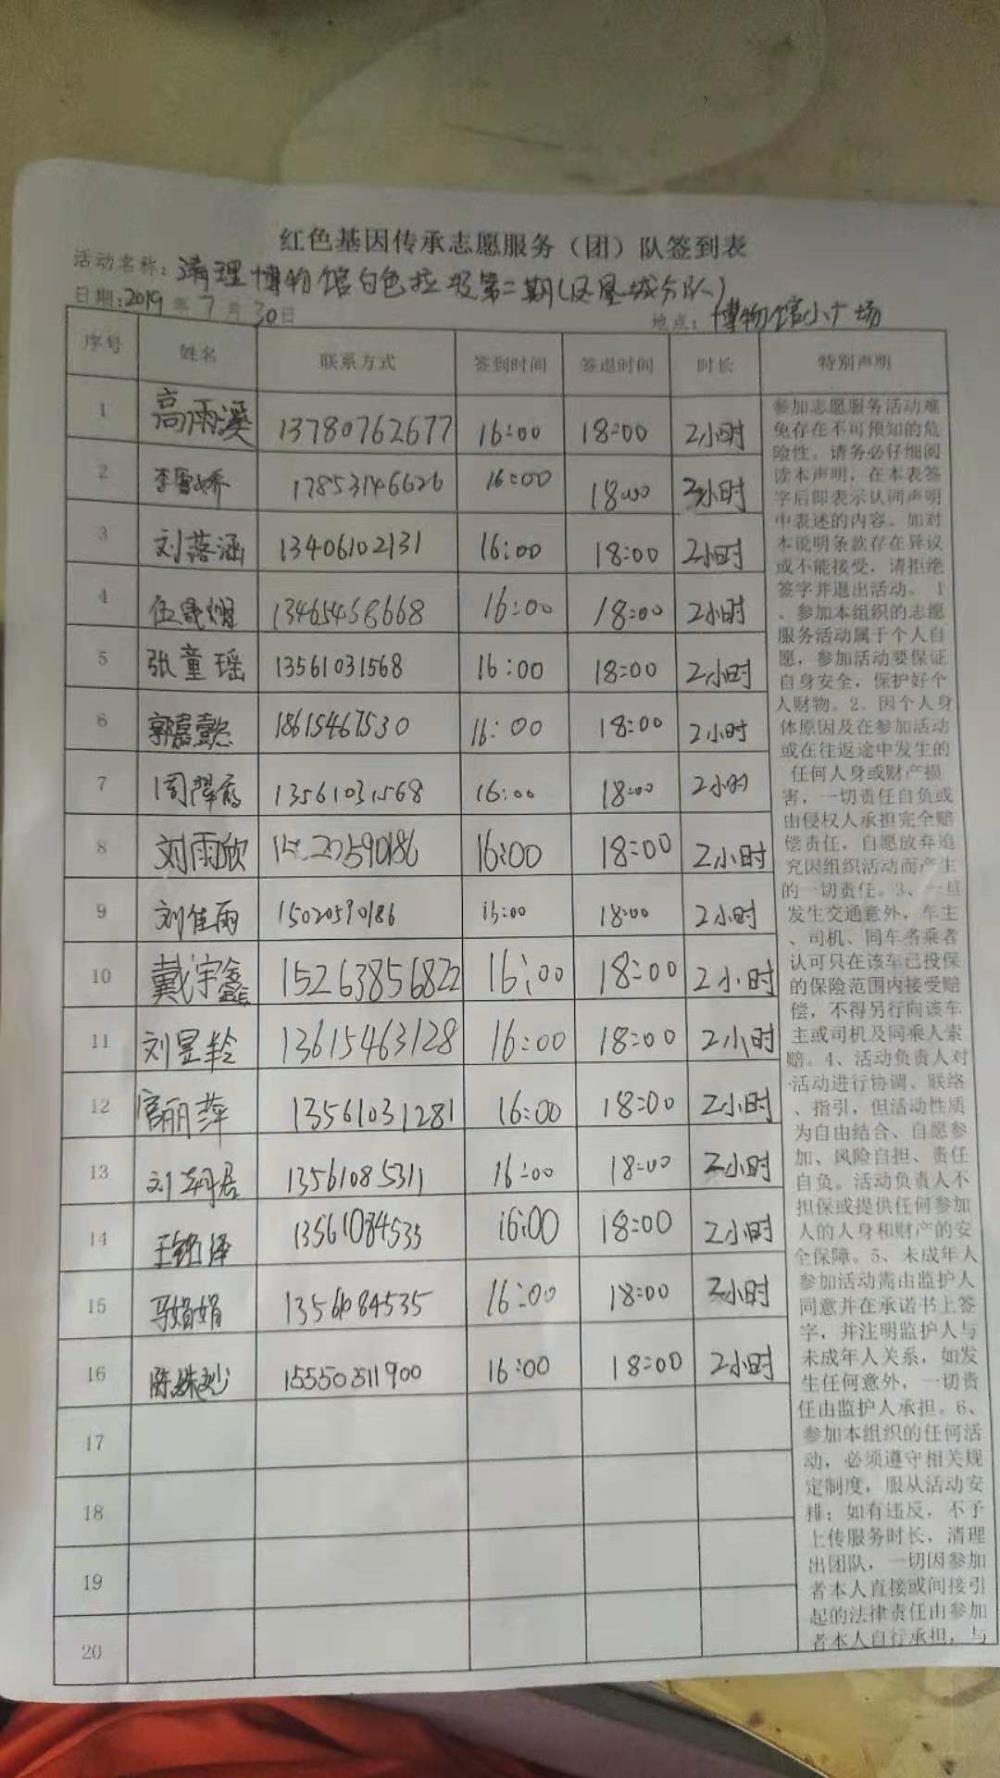 红色基因传承志愿服务（团）队签到表
活动名称：清理博物馆白色垃圾第二期(凤凰城分队)
日期：2019年7月30日 地点：博物馆小广场
序号 姓名 联系方式 签到时间 签退时间 时长 特别声明
1 高雨溪 13780762677 16:00 18:00 2小时
2 李雪娇 17853146626 16:00 18:00 2小时
3 刘落涵 13406102131 16:00 18:00 2小时
4 13465458668 16:00 18:00 2小时
5 张童瑶 13561031568 16:00 18:00 2小时
6 郭嘉懿 18615467530 16:00 18:00 2小时
7 13561031568 16:00 18:00 2小时
8 刘雨欣 16:00 18:00 2小时
9 刘佳雨 15020590186 18:00 2小时
10 戴宇鑫 15263856822 16:00 18:00 2小时
11 刘昱羚 13615463128 16:00 18:00 2小时
12 官丽萍 13561031281 16:00 18:00 2小时
13 13561085311 16:00 18:00 2小时
14 王铭泽 13561084535 16:00 18:00 2小时
15 马娟娟 13561084535 16:00 18:00 2小时
16 15550511900 16:00 18:00 2小时
17
18
19
20
参加志愿服务活动难
免存在不可预知的危
险性。请务必仔细阅
读本声明，在本表签
字后即表示认同声明
中表述的内容。如对
本说明条款存在异议
或不能接受，请拒绝
签字并退出活动。 1
、参加本组织的志愿
服务活动属于个人自
愿，参加活动要保证
自身安全，保护好个
人财物。2、因个人身
体原因及在参加活动
或在往返途中发生的
任何人身或财产损
害，一切责任自负或
由侵权人承担完全赔
偿责任，自愿放弃追
究因组织活动而产生
的一切责任。3、一旦
发生交通意外，车主
、司机、同车搭乘者
认可只在该车已投保
的保险范围内接受赔
偿，不得另行向该车
主或司机及同乘人索
赔。4、活动负责人对
活动进行协调、联络
、指引，但活动性质
为自由结合、自愿参
加、风险自担、责任
自负。活动负责人不
担保或提供任何参加
人的人身和财产的安
全保障。5、未成年人
参加活动需由监护人
同意并在承诺书上签
字，并注明监护人与
未成年人关系，如发
生任何意外，一切责
任由监护人承担。6、
参加本组织的任何活
动，必须遵守相关规
定制度，服从活动安
排；如有违反，不予
上传服务时长，清理
出团队，一切因参加
者本人直接或间接引
起的法律责任由参加
者本人自行承担，与